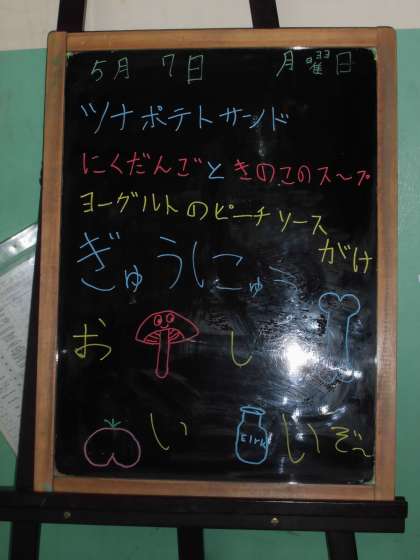 5月 7日 月曜日
ツナポテトサンド
にくだんごときのこのスープ
ヨーグルトのピーチソース
がけ
ぎゅうにゅう
お し
い いぞ〜